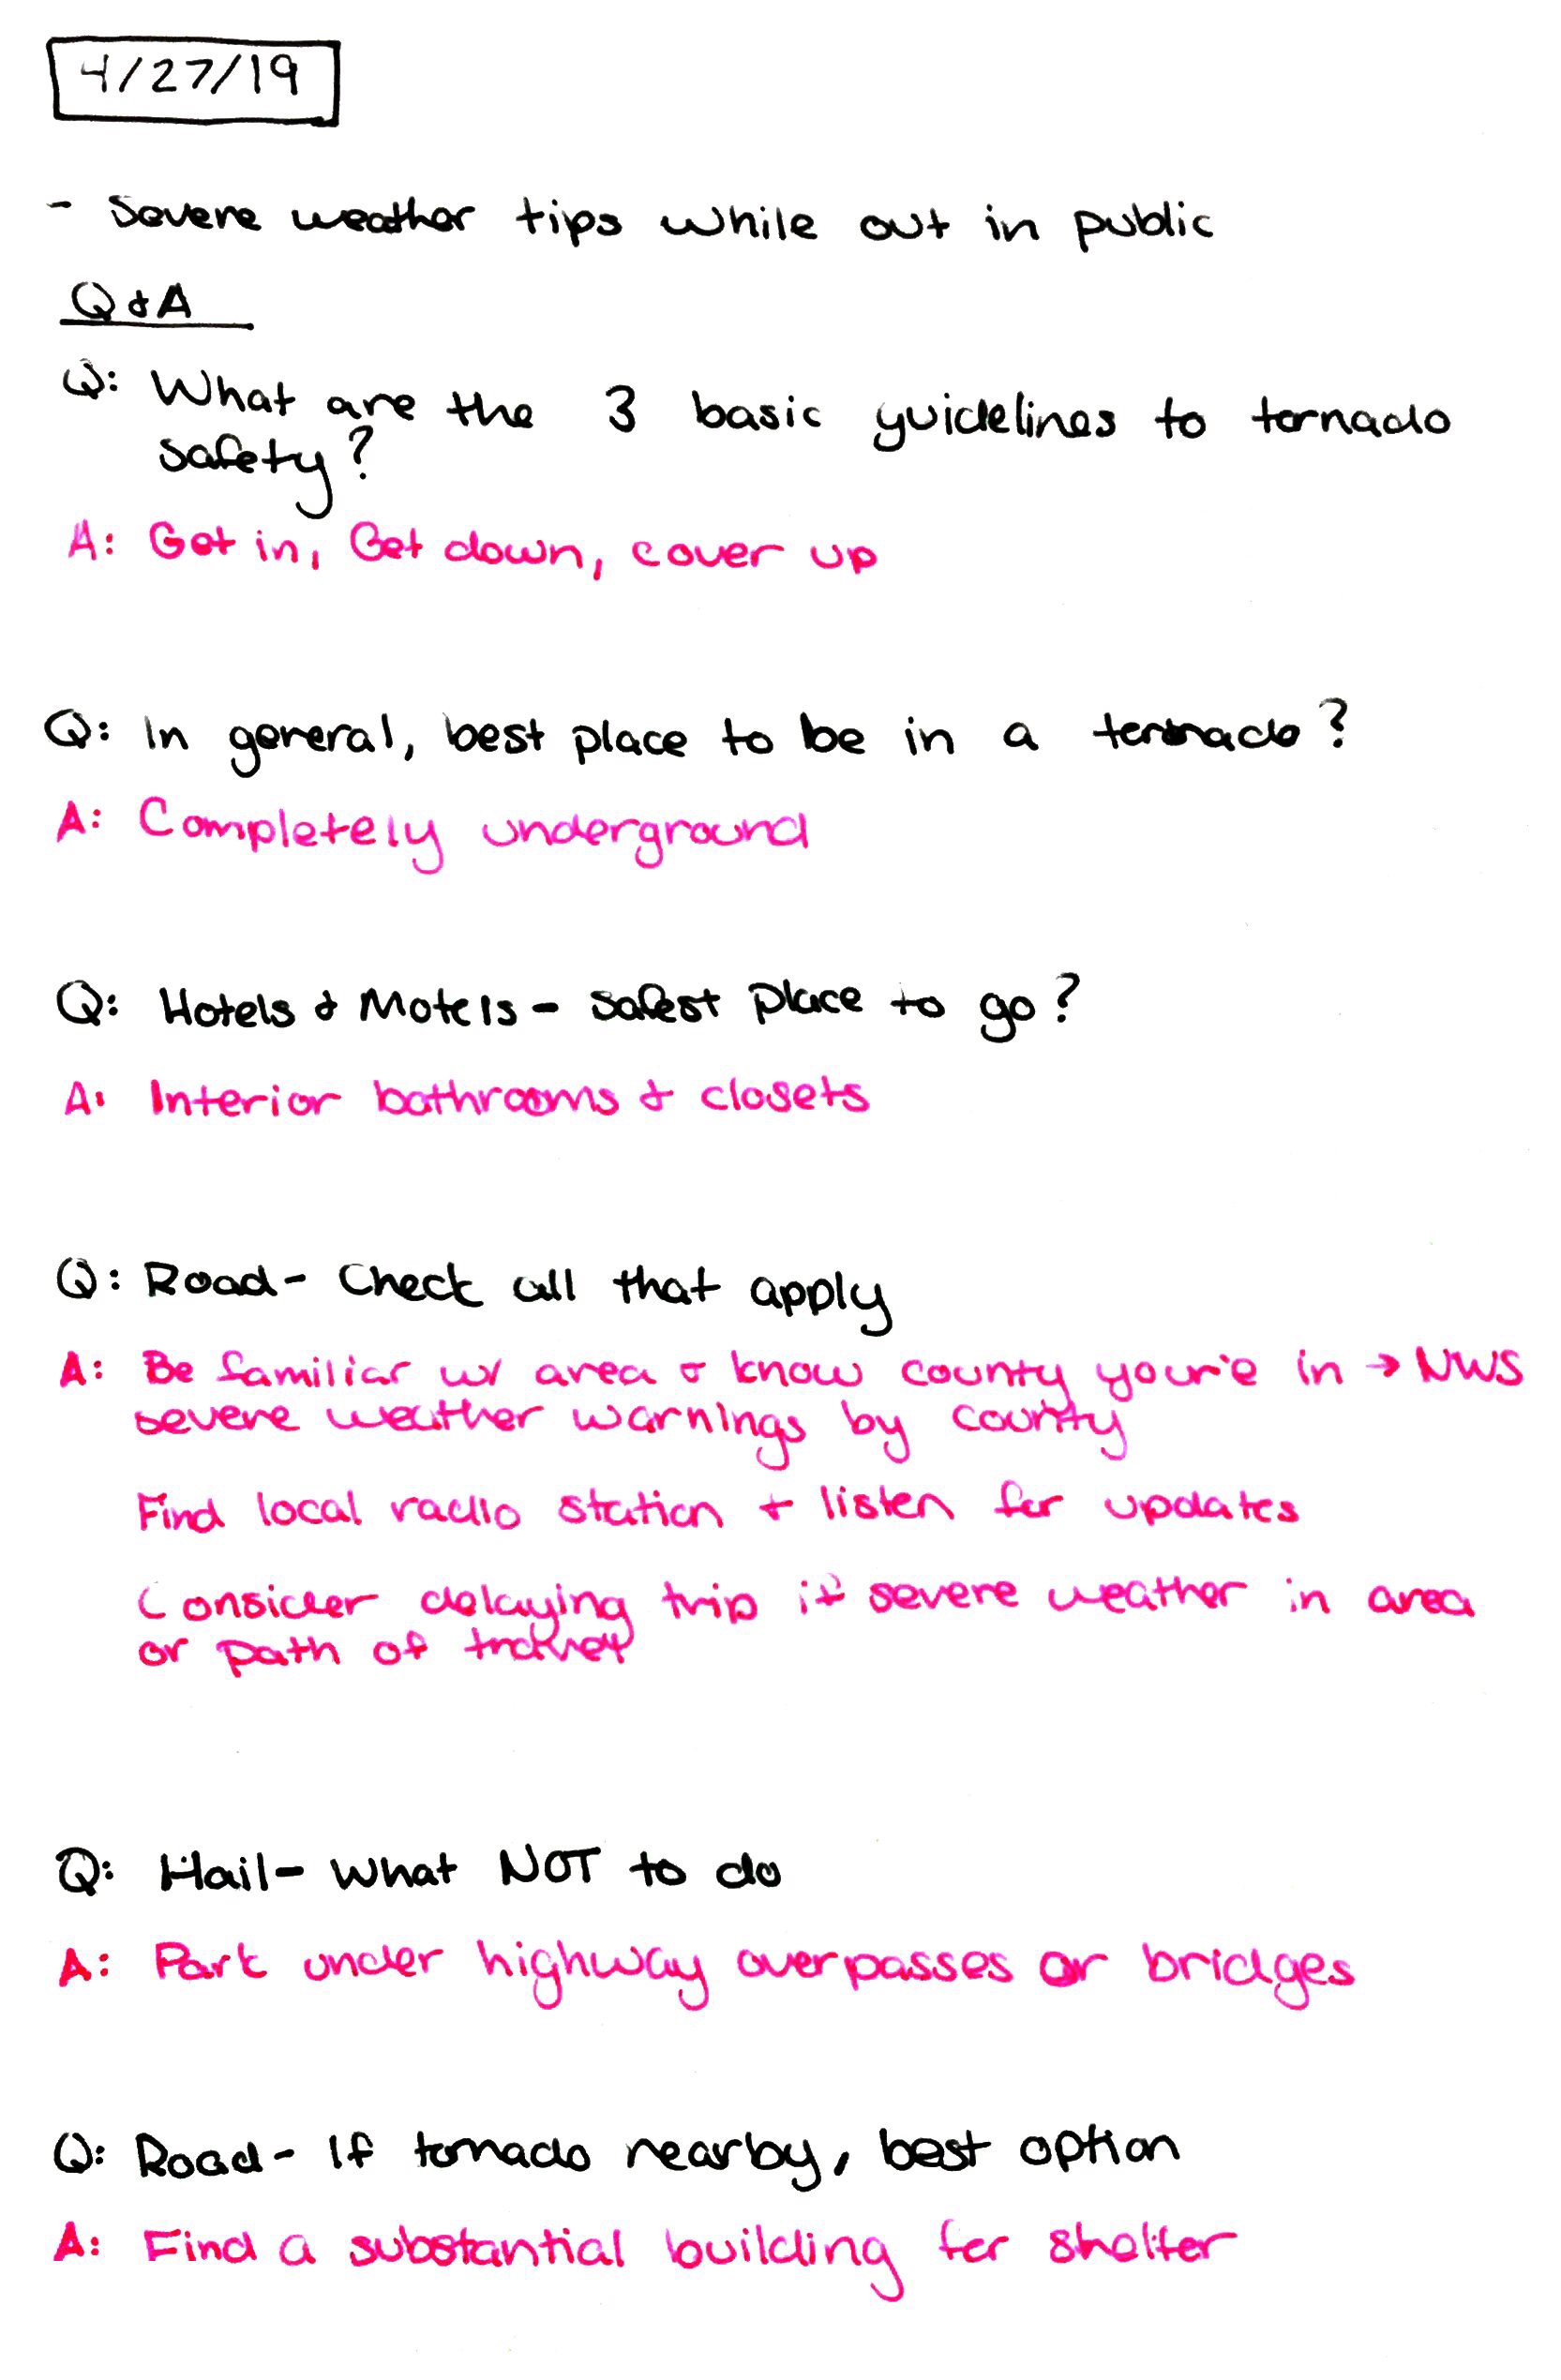 4/27/19
- Severe weather tips while out in public
Q & A
Q: What are the 3 basic guidelines to tornado
safety?
A: Get in, Get down, cover up
Q: In general, best place to be in a tornado?
A: Completely underground
Q: Hotels & Motels - safest place to go?
A: Interior bathrooms & closets
Q: Road - Check all that apply
A: Be familiar w/ area & know county your'e in → NWS
severe weather warnings by county
Find local radio station + listen for updates
Consider delaying trip if severe weather in area
or path of
Q: Hail - What NOT to do
A: Park under highway overpasses or bridges
Q: Road - If tornado nearby, best option
A: Find a substantial building for shelter